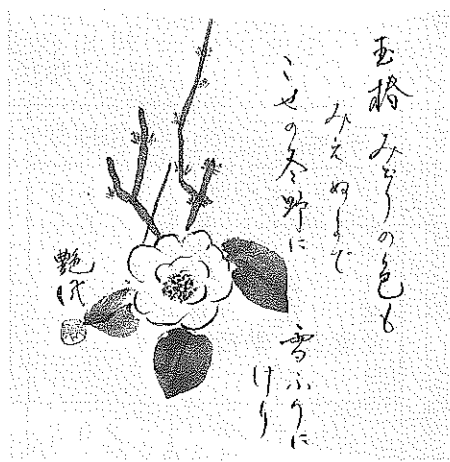 玉椿みどりの色も
みえぬまで
こせの冬野に
雪ふりに
けり
艶代